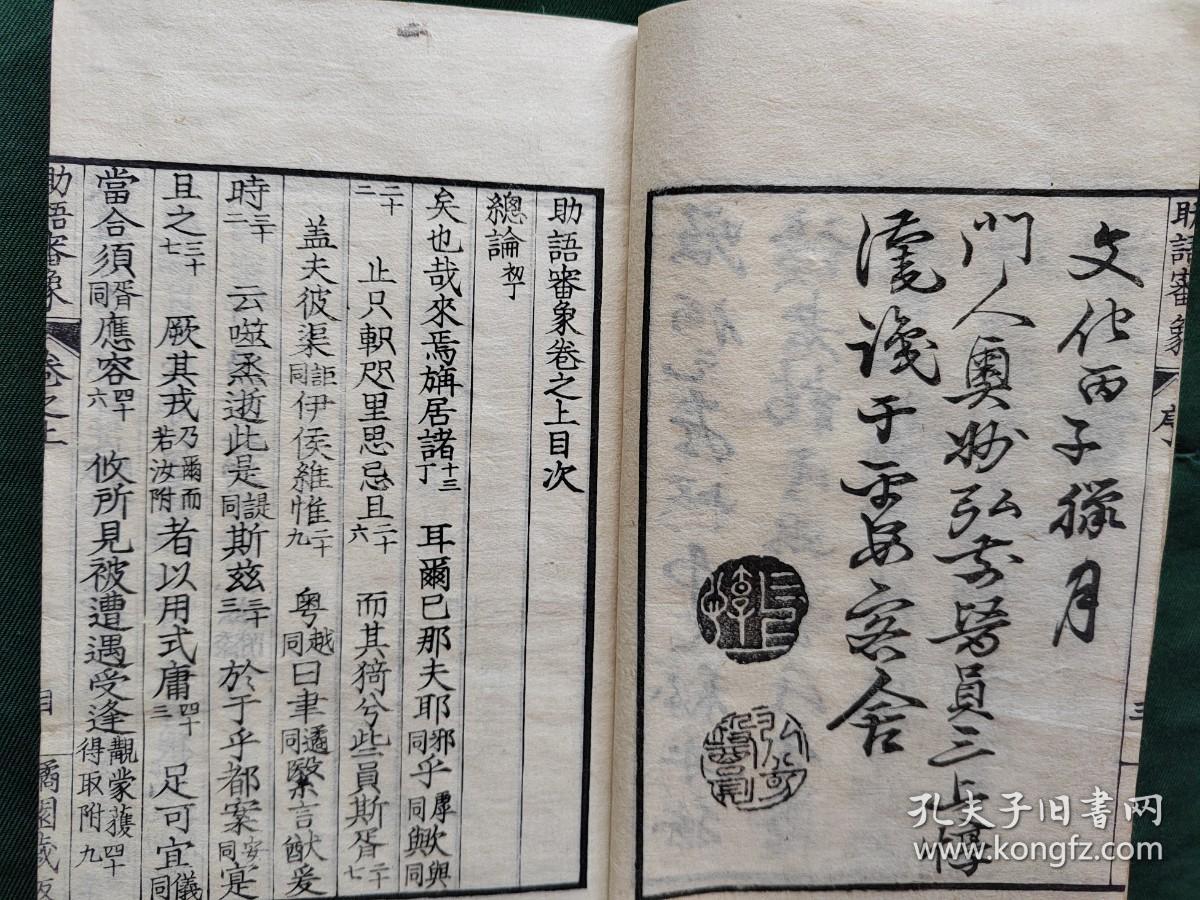 助語審象 序
文化丙子臘月
門人奥州弘前醫員三上
謾識于平安客舍
助語審象卷之上目次
總論 初丁
矣也哉來焉旃居諸 十三丁 耳爾已那夫耶 邪同 乎 虖同 歟 與同
二十二 止只軹咫里思忌且 二十六 而其猗兮些員斯胥 二十七
盖夫彼渠 詎同 伊侯維惟 二十九 粤 越同 曰聿 遹同 繄言猷爰
時 三十二 云噬烝逝此是 諟同 斯玆 三十三 於于乎都案 安同 寔
且之 三十七 厥其戎 乃爾而若汝附 者以用式庸 四十三 足可宜 儀同
當合須 胥同 應容 四十六 攸所見被遭遇受逢 覯蒙獲得取附 四十九
助語審象 卷之上 目
孔夫子旧书网
www.kongfz.com